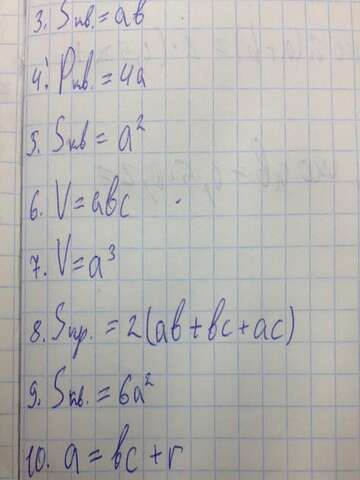 3. Sкв. = ab
4. Pкв. = 4a
5. Sкв = a²
6. V = abc
7. V = a³
8. Sпр. = 2(ab + bc + ac)
9. Sкв. = 6a²
10. a = bc + r